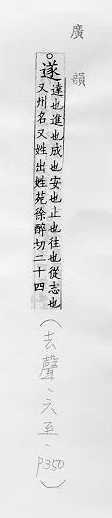 廣韻
○遂
達也進也成也安也止也往也從志也
又州名又姓出姓苑徐醉切二十四
(去聲、六至、P350)